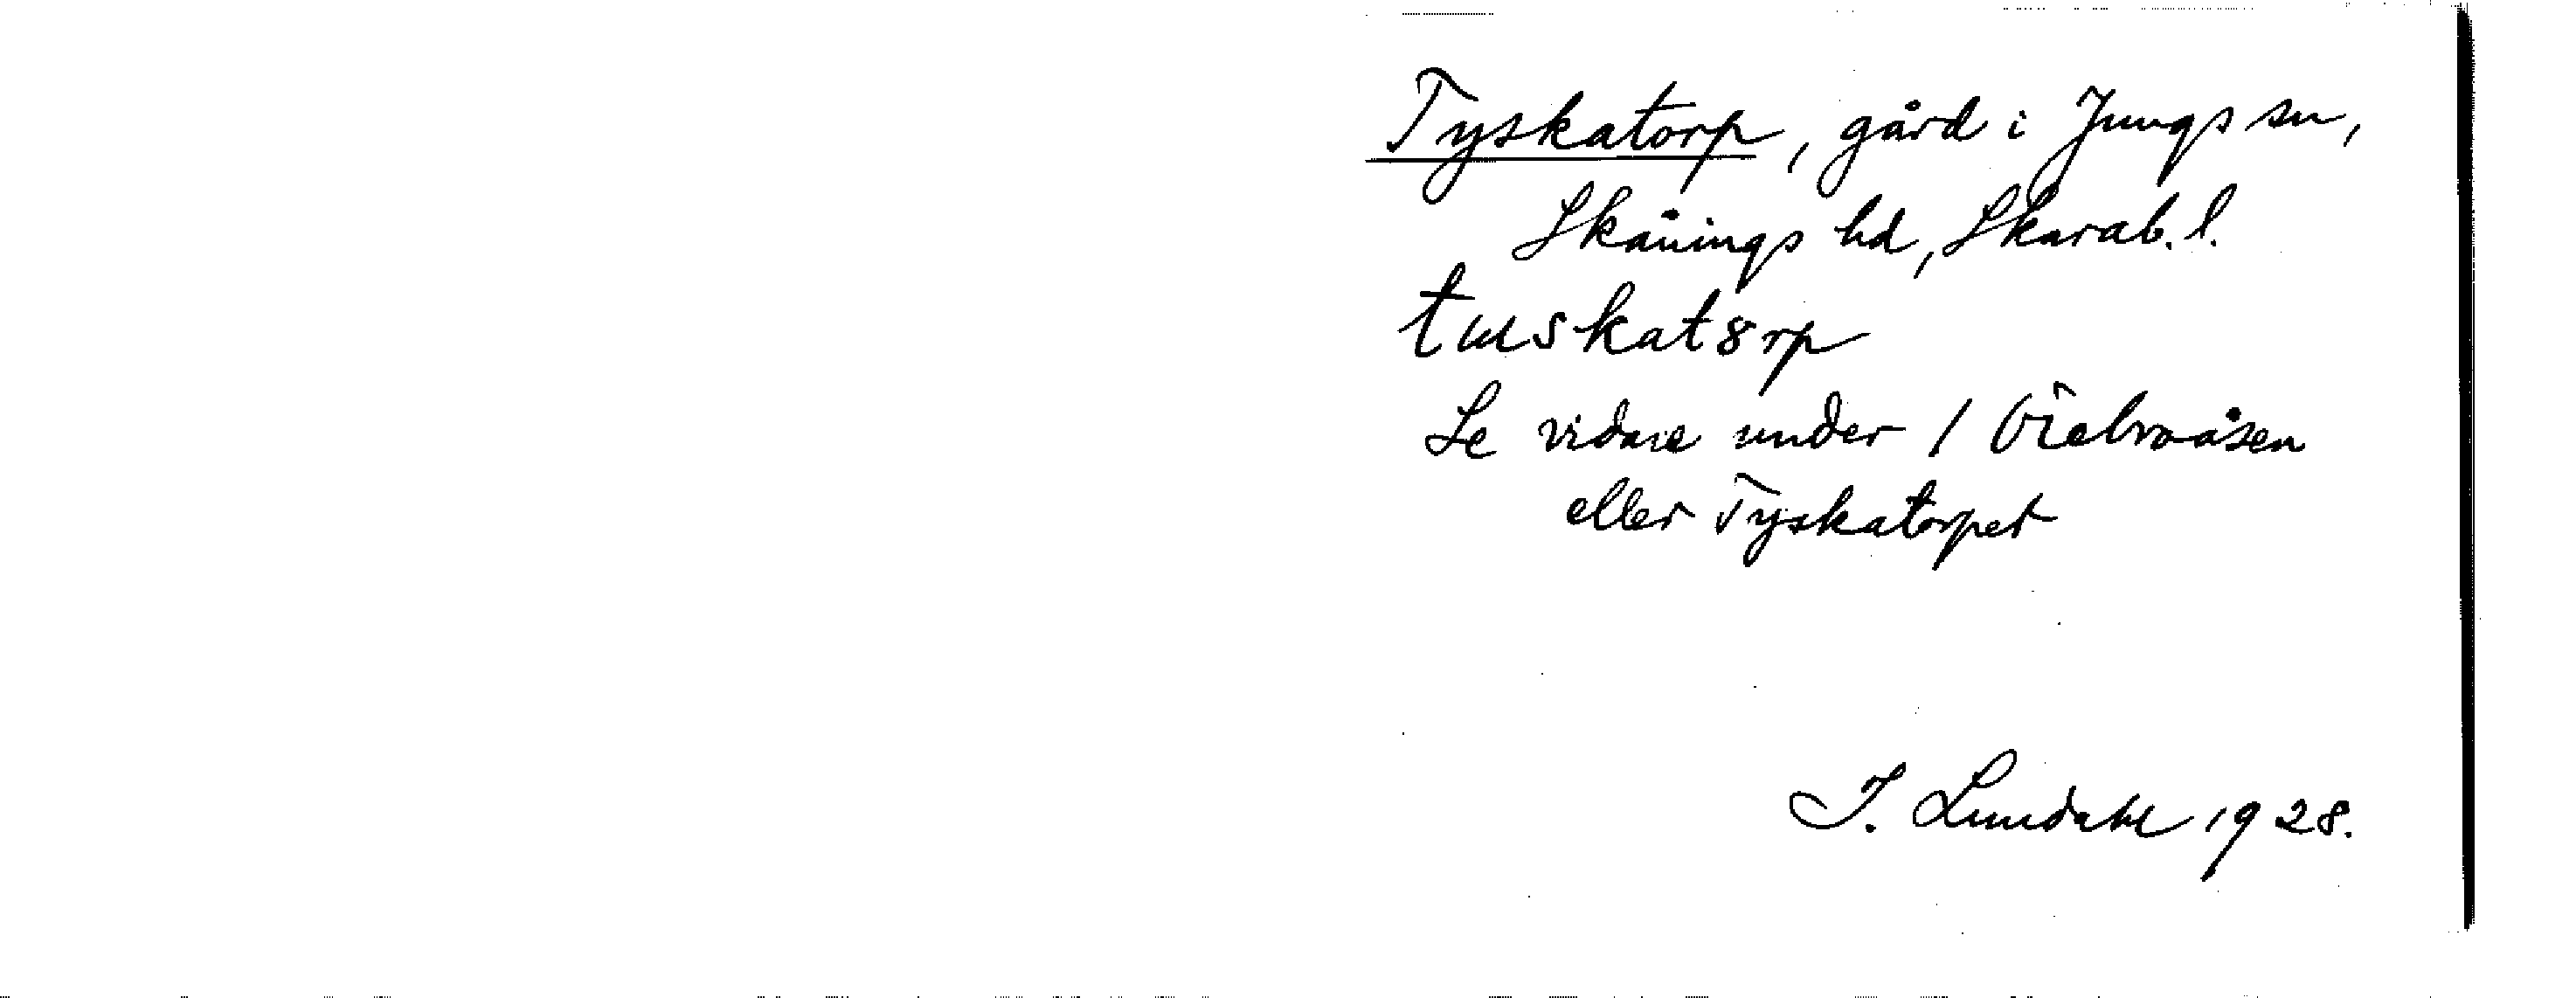 Tyskatorp, gård i Jungs sn,
Skånings hd, Skarab. l.
tuskat8rp
Se vidare under 1 Örebroåsen
eller Tyskatorpet
I. Lundahl 1928.